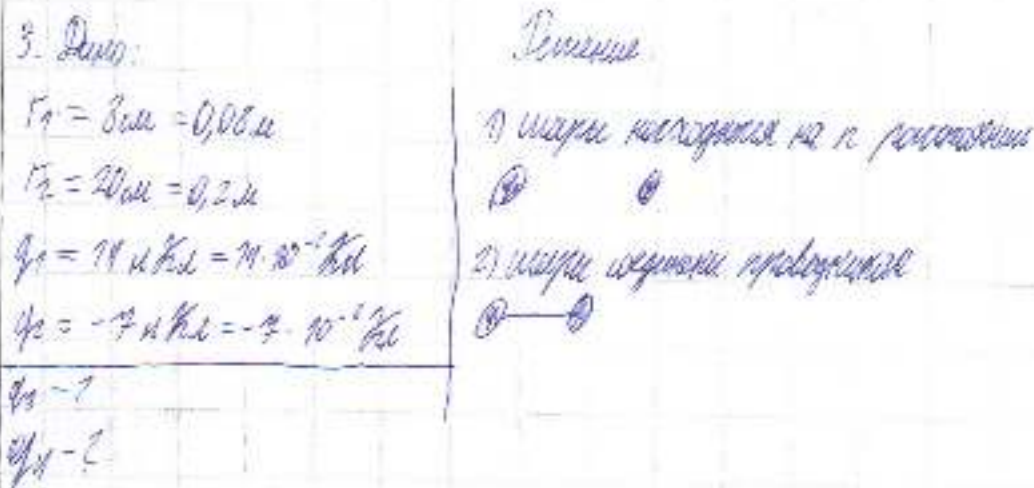 3. Дано:
r₁ = 8 см = 0,08 м
r₂ = 20 см = 0,2 м
q₁ = 14 нКл = 14 · 10⁻⁹ Кл
q₂ = -7 нКл = -7 · 10⁻⁹ Кл
q₃ - ?
q₄ - ?
Решение
1) шары находятся на r расстоянии
2) шары соединены проводником